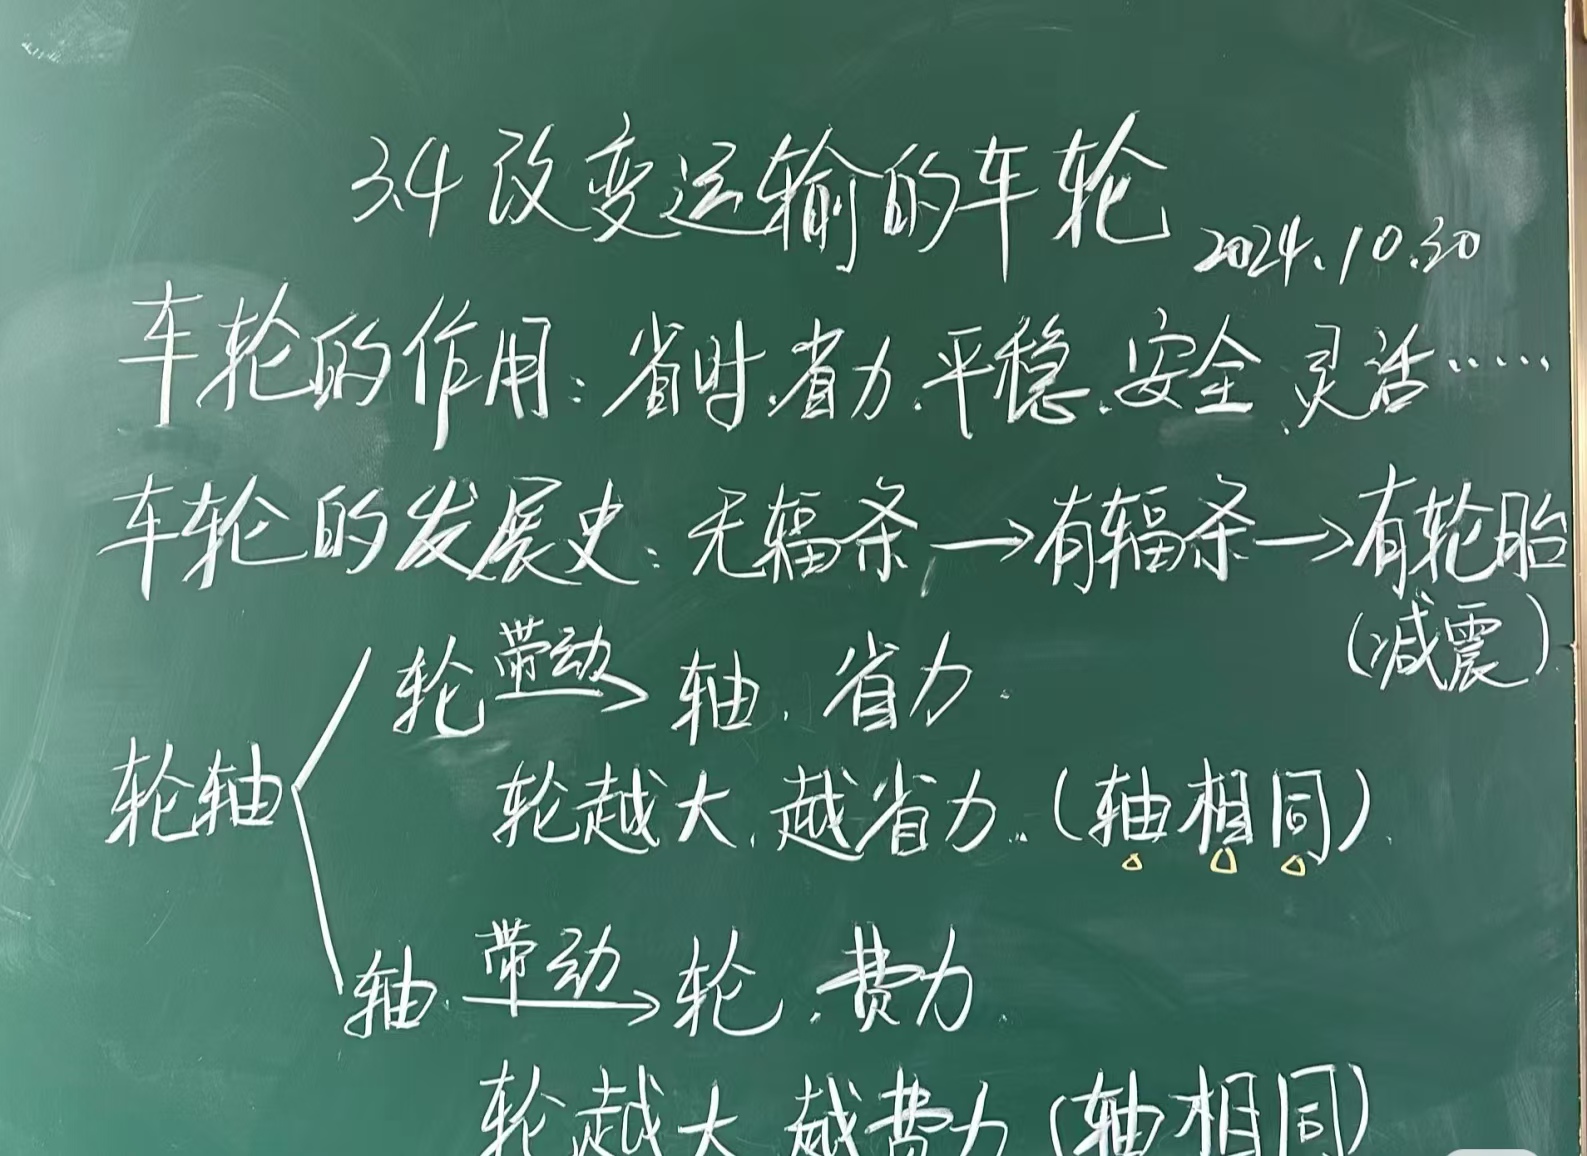 3.4 改变运输的车轮
2024.10.30
车轮的作用：省时、省力、平稳、安全、灵活……
车轮的发展史：无辐条→有辐条→有轮胎
（减震）
轮 带动→ 轴，省力.
轮轴
轮越大，越省力.（轴相同）.
轴 带动→ 轮，费力.
轮越大 越费力（轴相同）